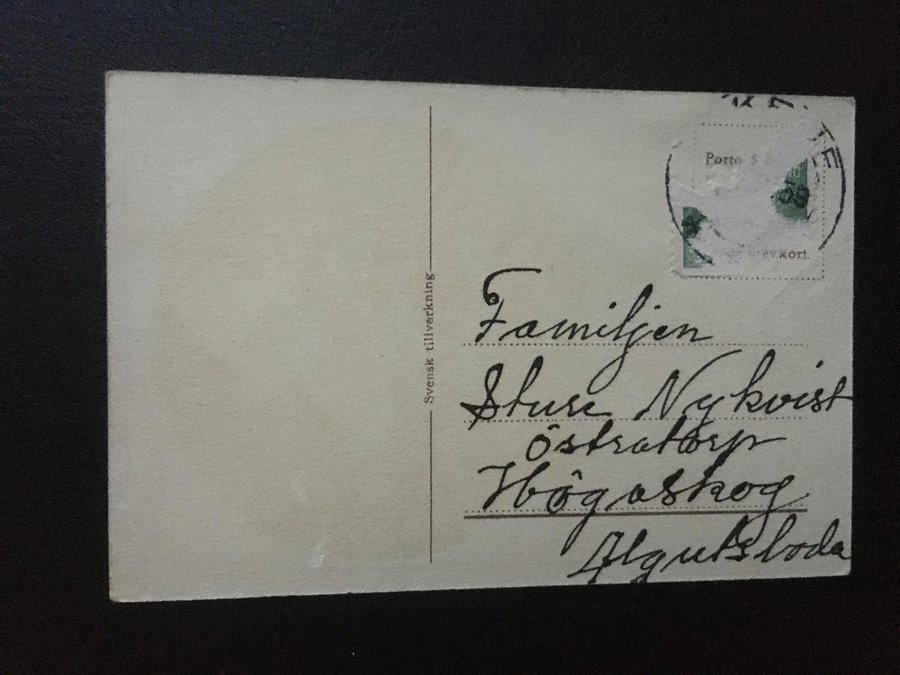 Porto 5
brevkort.
Svensk tillverkning
Familjen
Sture Nykvist
Östratorp
Högaskog
Algutsboda